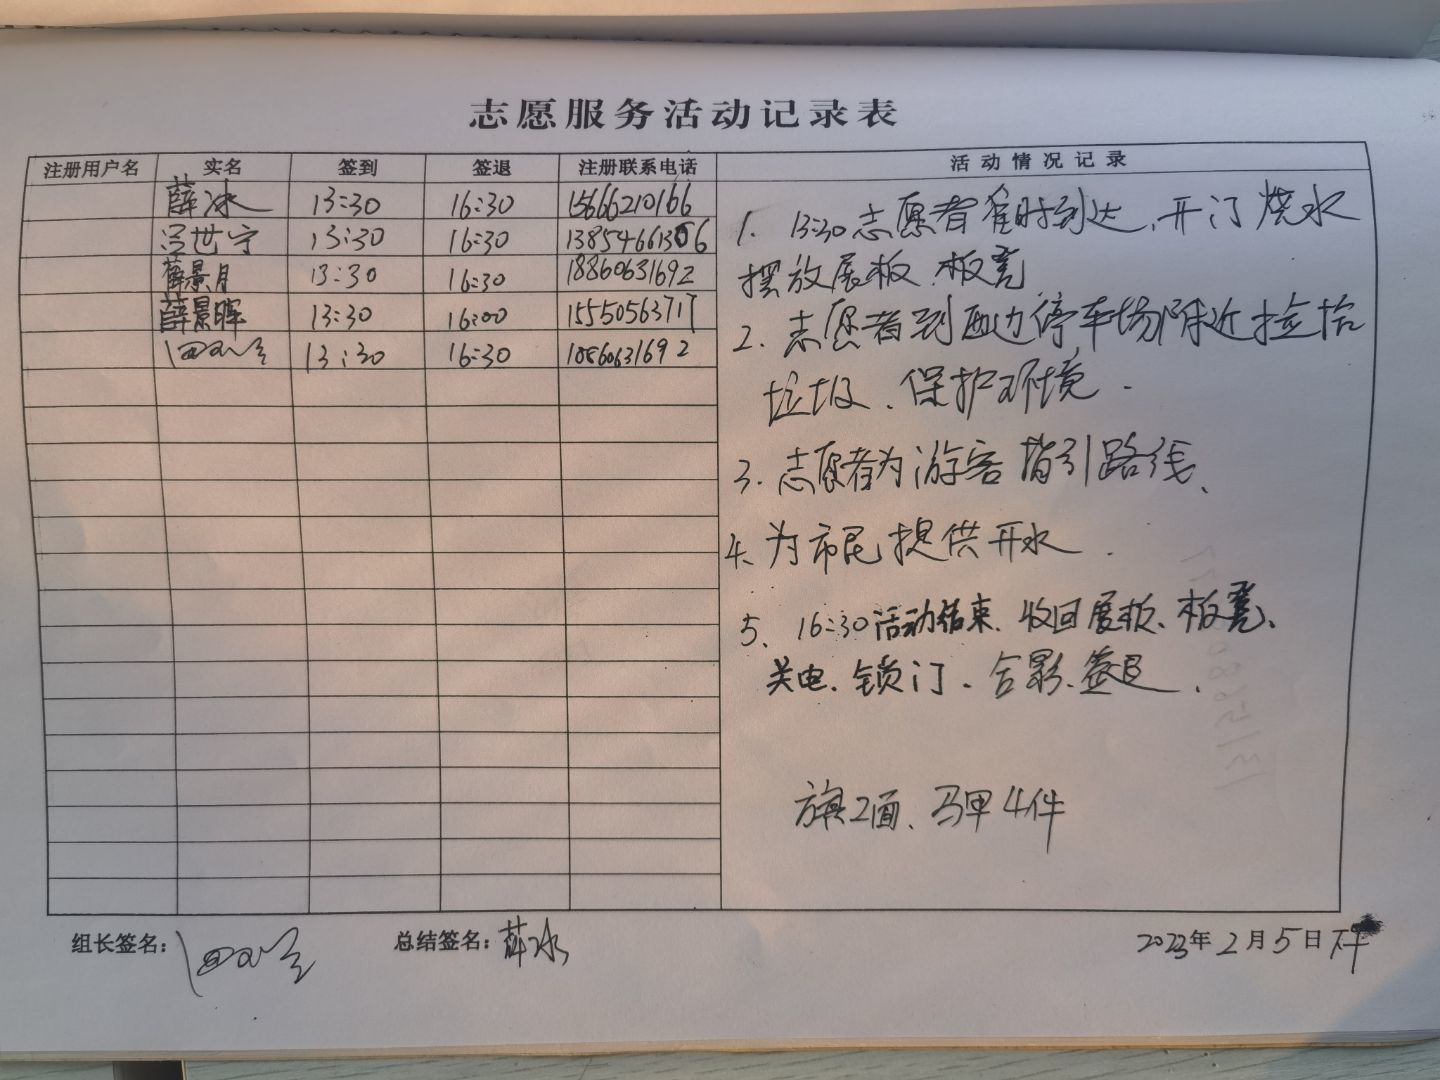 志愿服务活动记录表
注册用户名 实名 签到 签退 注册联系电话 活动情况记录
薛冰 13:30 16:30 15666210166
吕世宁 13:30 16:30 13854661306
薛景月 13:30 16:30 18860631692
薛景晖 13:30 16:00 15550563717
13:30 16:30 18860631692
1. 13:30志愿者准时到达,开门烧水
摆放展板、板凳
2. 志愿者到西边停车场附近捡拾
垃圾、保护环境.
3. 志愿者为游客指引路线、
4. 为市民提供开水.
5、16:30活动结束、收回展板、板凳、
关电、锁门、合影、签退、
旗2面、马甲4件
组长签名: 总结签名: 薛冰
2023年2月5日下午